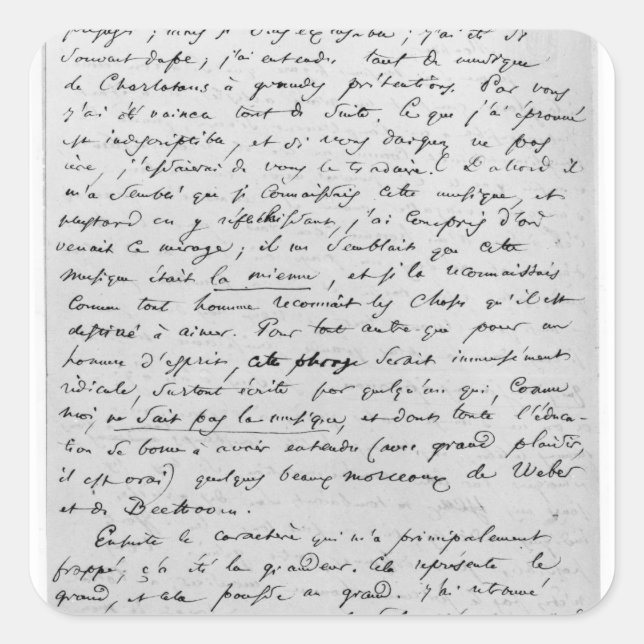 préjugés ; mais si vous excusable ; j'ai été si
souvent dupe ; j'ai entendu tant de musique
de Charlatans à grandes prétentions. Par vous
j'ai été vaincu tout de suite. Ce que j'ai éprouvé
est indescriptible, et si vous daignez ne pas
rire, j'essaierai de vous le traduire. D'abord il
m'a semblé que je connaissais cette musique, et
plus tard en y réfléchissant, j'ai compris d'où
venait ce mirage ; il me semblait que cette
musique était la mienne, et je la reconnaissais
comme tout homme reconnaît les choses qu'il est
destiné à aimer. Pour tout autre que pour un
homme d'esprit, cette phrase serait immensément
ridicule, surtout écrite par quelqu'un qui, comme
moi, ne sait pas la musique, et dont toute l'éduca-
tion se borne à avoir entendu (avec grand plaisir,
il est vrai) quelques beaux morceaux de Weber
et de Beethoven.
Ensuite le caractère qui m'a principalement
frappé, ç'a été la grandeur. Cela représente le
grand, et cela pousse au grand. J'ai retrouvé